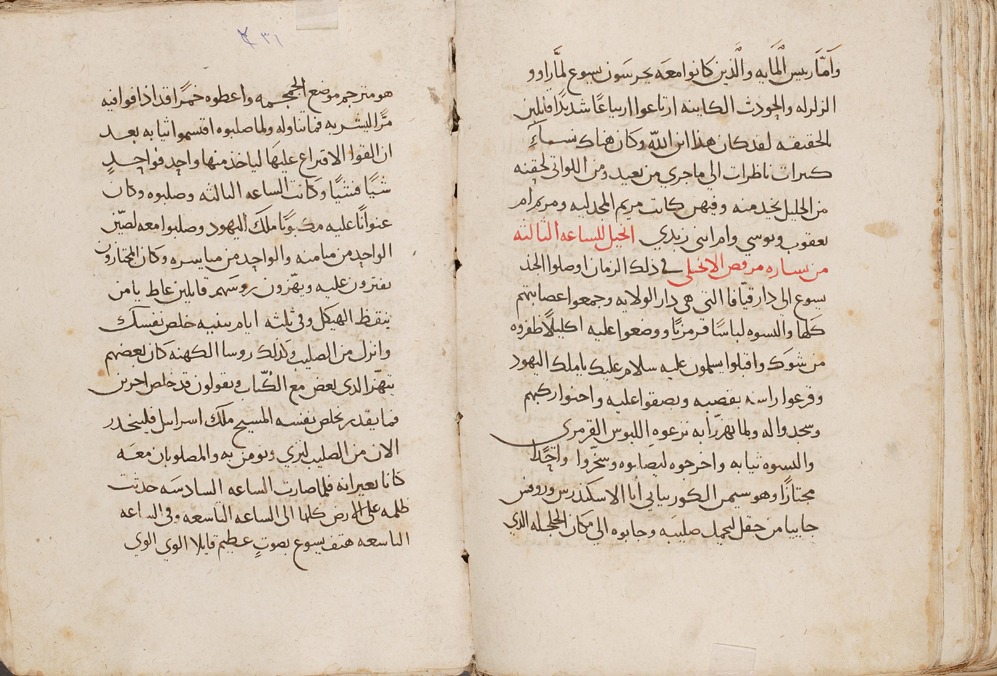 وَأمَّا ريس المَايه والَّذين كانوا معَه يحرسَون يسوع لمَّا راوو
الزلزله والحوادث الكاينه ارتاعوا ارتياعًا شديدًا قايلين
بالحقيقه لقد كان هذا ابن اللَّه وكان هناك نسآءٍ
كثيرات ناظرات الي ماجري من بعيد ومن اللواتي لحقنه
من الجليل يخدمنه وفيهن كانت مريم المجدليه ومريم ام
يعقوب ويوسي وام ابني زبدي انجيل للساعه الثالثه
من بشاره مرقص الانجيلي في ذلك الزمان اوصلوا الجند
يسوع الي دار قيافا التي هي دار الولايه وجمعوا اعصابتهم
كلها والبسوه لباسًا قرمزيًا ووضعوا عليه اكليلًا ظفروه
من شوك واقبلوا يسلمون عليه سلام عليك ياملك اليهود
وقرعوا راسه بقصبه وبصقوا عليه واحنوا ركبهم
وسجدوا له ولما تهزَّا به نزعوه اللبوس القرمزي
والبسوه ثيابه واخرجوه ليصلبوه وسخَّروا واحِدًا
مجتازًا وهو سيمن الكوريناني أبا الاسكندرس وروفس
جاييا من حقل ليحمل صليبه وجابوه الي مكان الجلجله الذي
٣١
هو مترجم موضع الجمجمه واعطوه خمرًا قد اذا قوا فيه
مرًّا ليشربه فما تناوله ولما صلبوه اقتسموا ثيابه بعد
ان القوا الاقتراع عليهَا لياخذ منها واحِد فواحِدٍ
شيًا فشيًا وكانت الساعه الثالثه وصلبوه وكان
عنوانًا عليه مكتوبًا ملك اليهود وصلبوا معه لصَّين
الواحد من ميامنه والواحد من مياسره وكان المجتازون
يفترون عليه ويهزون روسهم قايلين عاط يامن
ينقظ الهيكل وفي ثلثه ايام يبنيه خلص نفسك
وانزل من الصليب وكذلك روسا الكهنه كان بعضهم
يتهزا لدي بعض مع الكُتَّاب ويقولون قد خلص اخرين
فما يقدر يخلص نفسه المسيح ملك اسرايل فلينحدر
الان من الصليب لنري ونومن به والمصلوبان معه
كانا يعيرانه فلما صارت الساعه السادسه حدثت
ظلمه علي الارض كلها الي الساعه التاسعه وفي الساعه
التاسعه هتف يسوع بصوتٍ عظيم قايلا الوي الوي